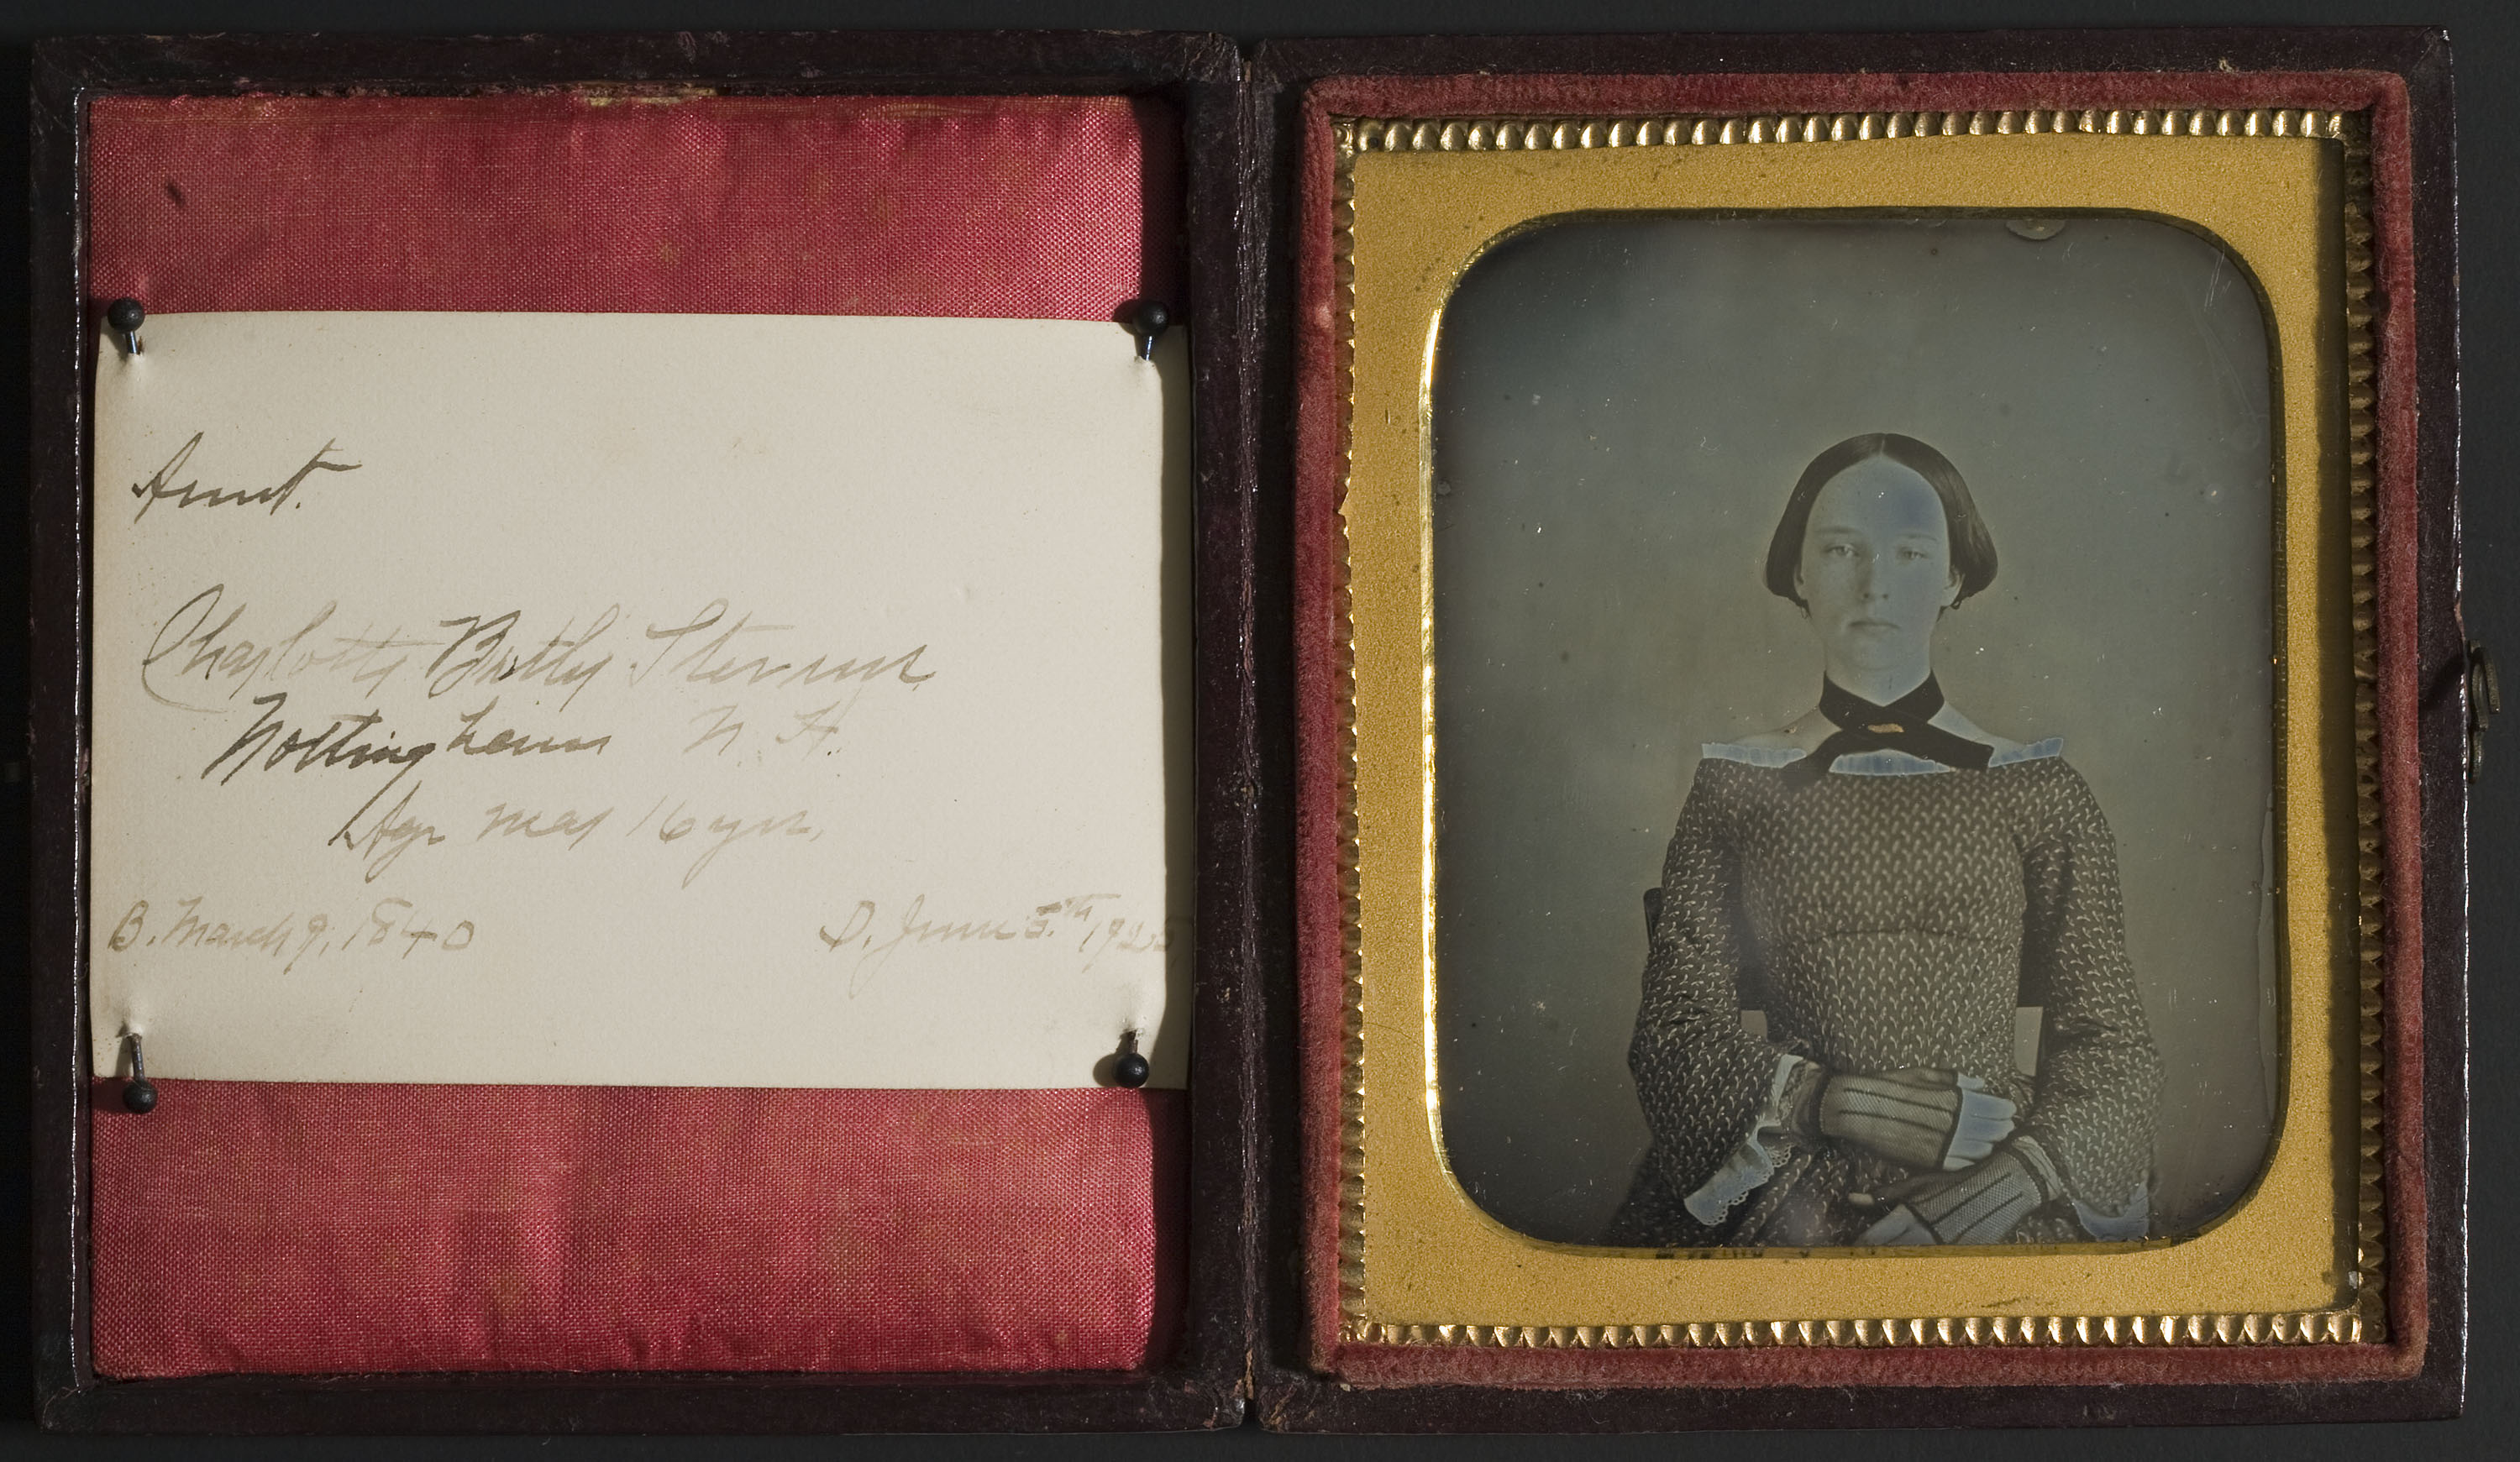 Aunt.
Charlotty Butly Stevens
Nottingham N. H.
Age may 16 yrs.
B. March 9, 1840
D. June 5.th